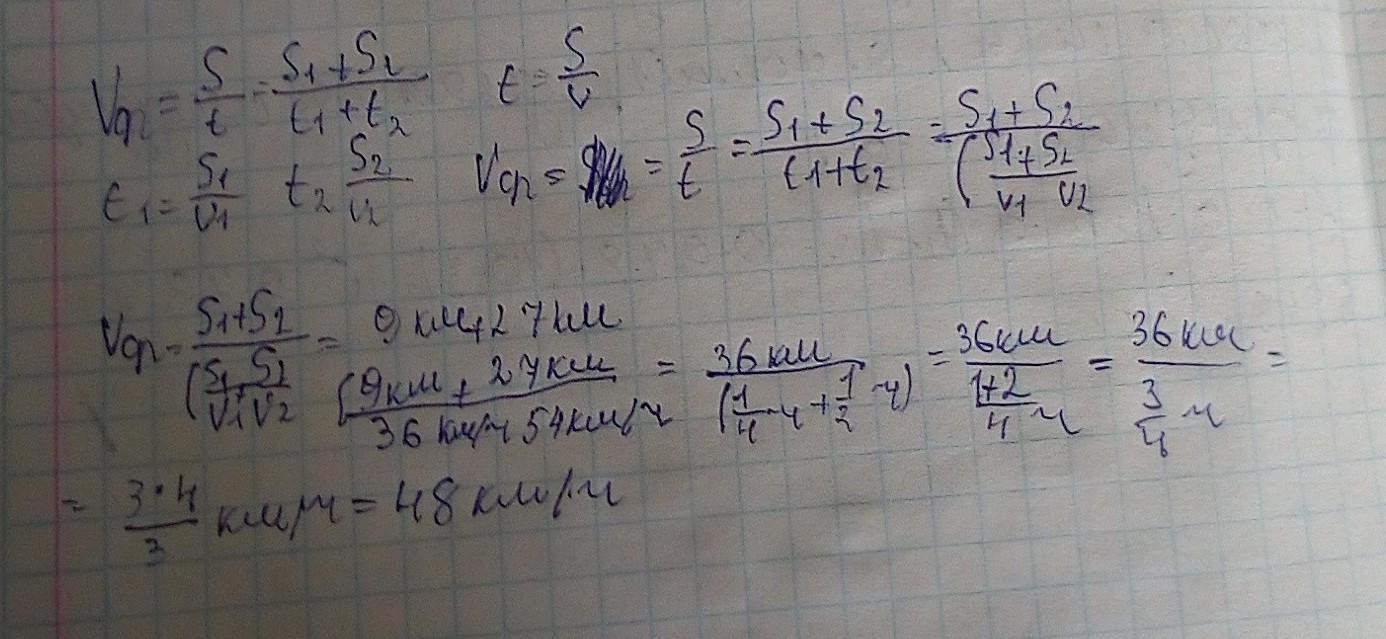 Vср = S/t = (S1+S2)/(t1+t2)   t = S/v
t1 = S1/v1   t2 S2/v2   Vср = = S/t = (S1+S2)/(t1+t2) = (S1+S2)/(S1/v1+S2/v2
Vср = (S1+S2)/(S1/v1+S2/v2 = (9 км+27 км)/(9км/36 км/ч + 27км/54км/ч = 36 км/(1/4 ч + 1/2 ч) = 36км/((1+2)/4 ч) = 36 км/(3/4 ч) =
= (3·4)/3 км/ч = 48 км/ч